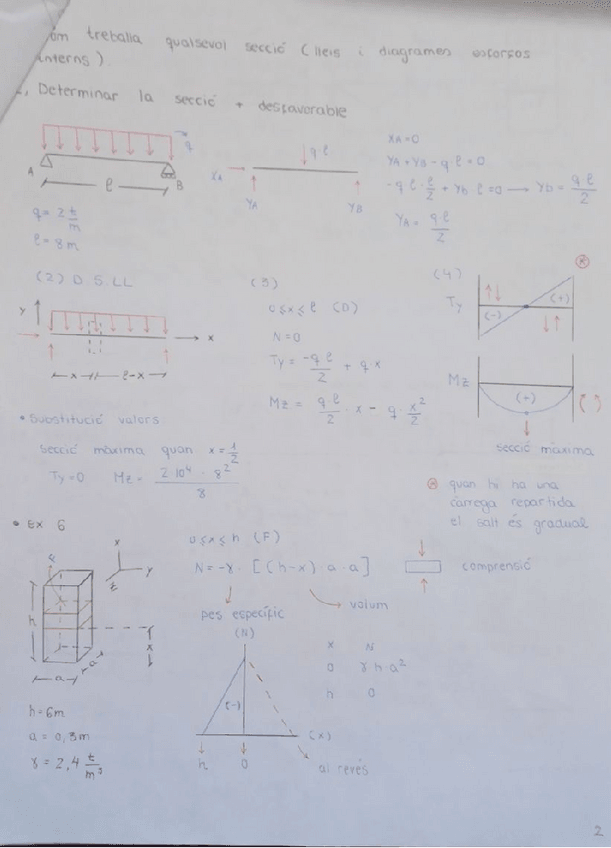 treballa qualsevol secció (lleis i diagrames esforços
interns).
Determinar la secció + desfavorable
q
A
B
ℓ
q = 2 t/m
ℓ = 8 m
q·ℓ
YA
YB
XA = 0
YA + YB - q·ℓ = 0
-q·ℓ·ℓ/2 + Yb·ℓ = 0 → Yb = q·ℓ/2
YA = q·ℓ/2
(2) D.S.LL
y
x
x
ℓ-x
(3)
0≤x≤ℓ (D)
N=0
Ty = -q·ℓ/2 + q·x
Mz = q·ℓ/2 · x - q · x²/2
(4)
Ty
(-)
(+)
Mz
(+)
secció màxima
• Substitució valors:
secció màxima quan
Ty=0 Mz = 2·10⁴·8²/8
quan hi ha una
càrrega repartida
el salt és gradual
• Ex 6
x
y
z
h
a
a
x
h=6m
a = 0,3m
γ = 2,4 t/m³
0≤x≤h (F)
N=-γ·[(h-x)·a·a]
compressió
volum
pes específic
(N)
(-)
(x)
h
0
al revés
x N
0 γ·h·a²
h 0
2